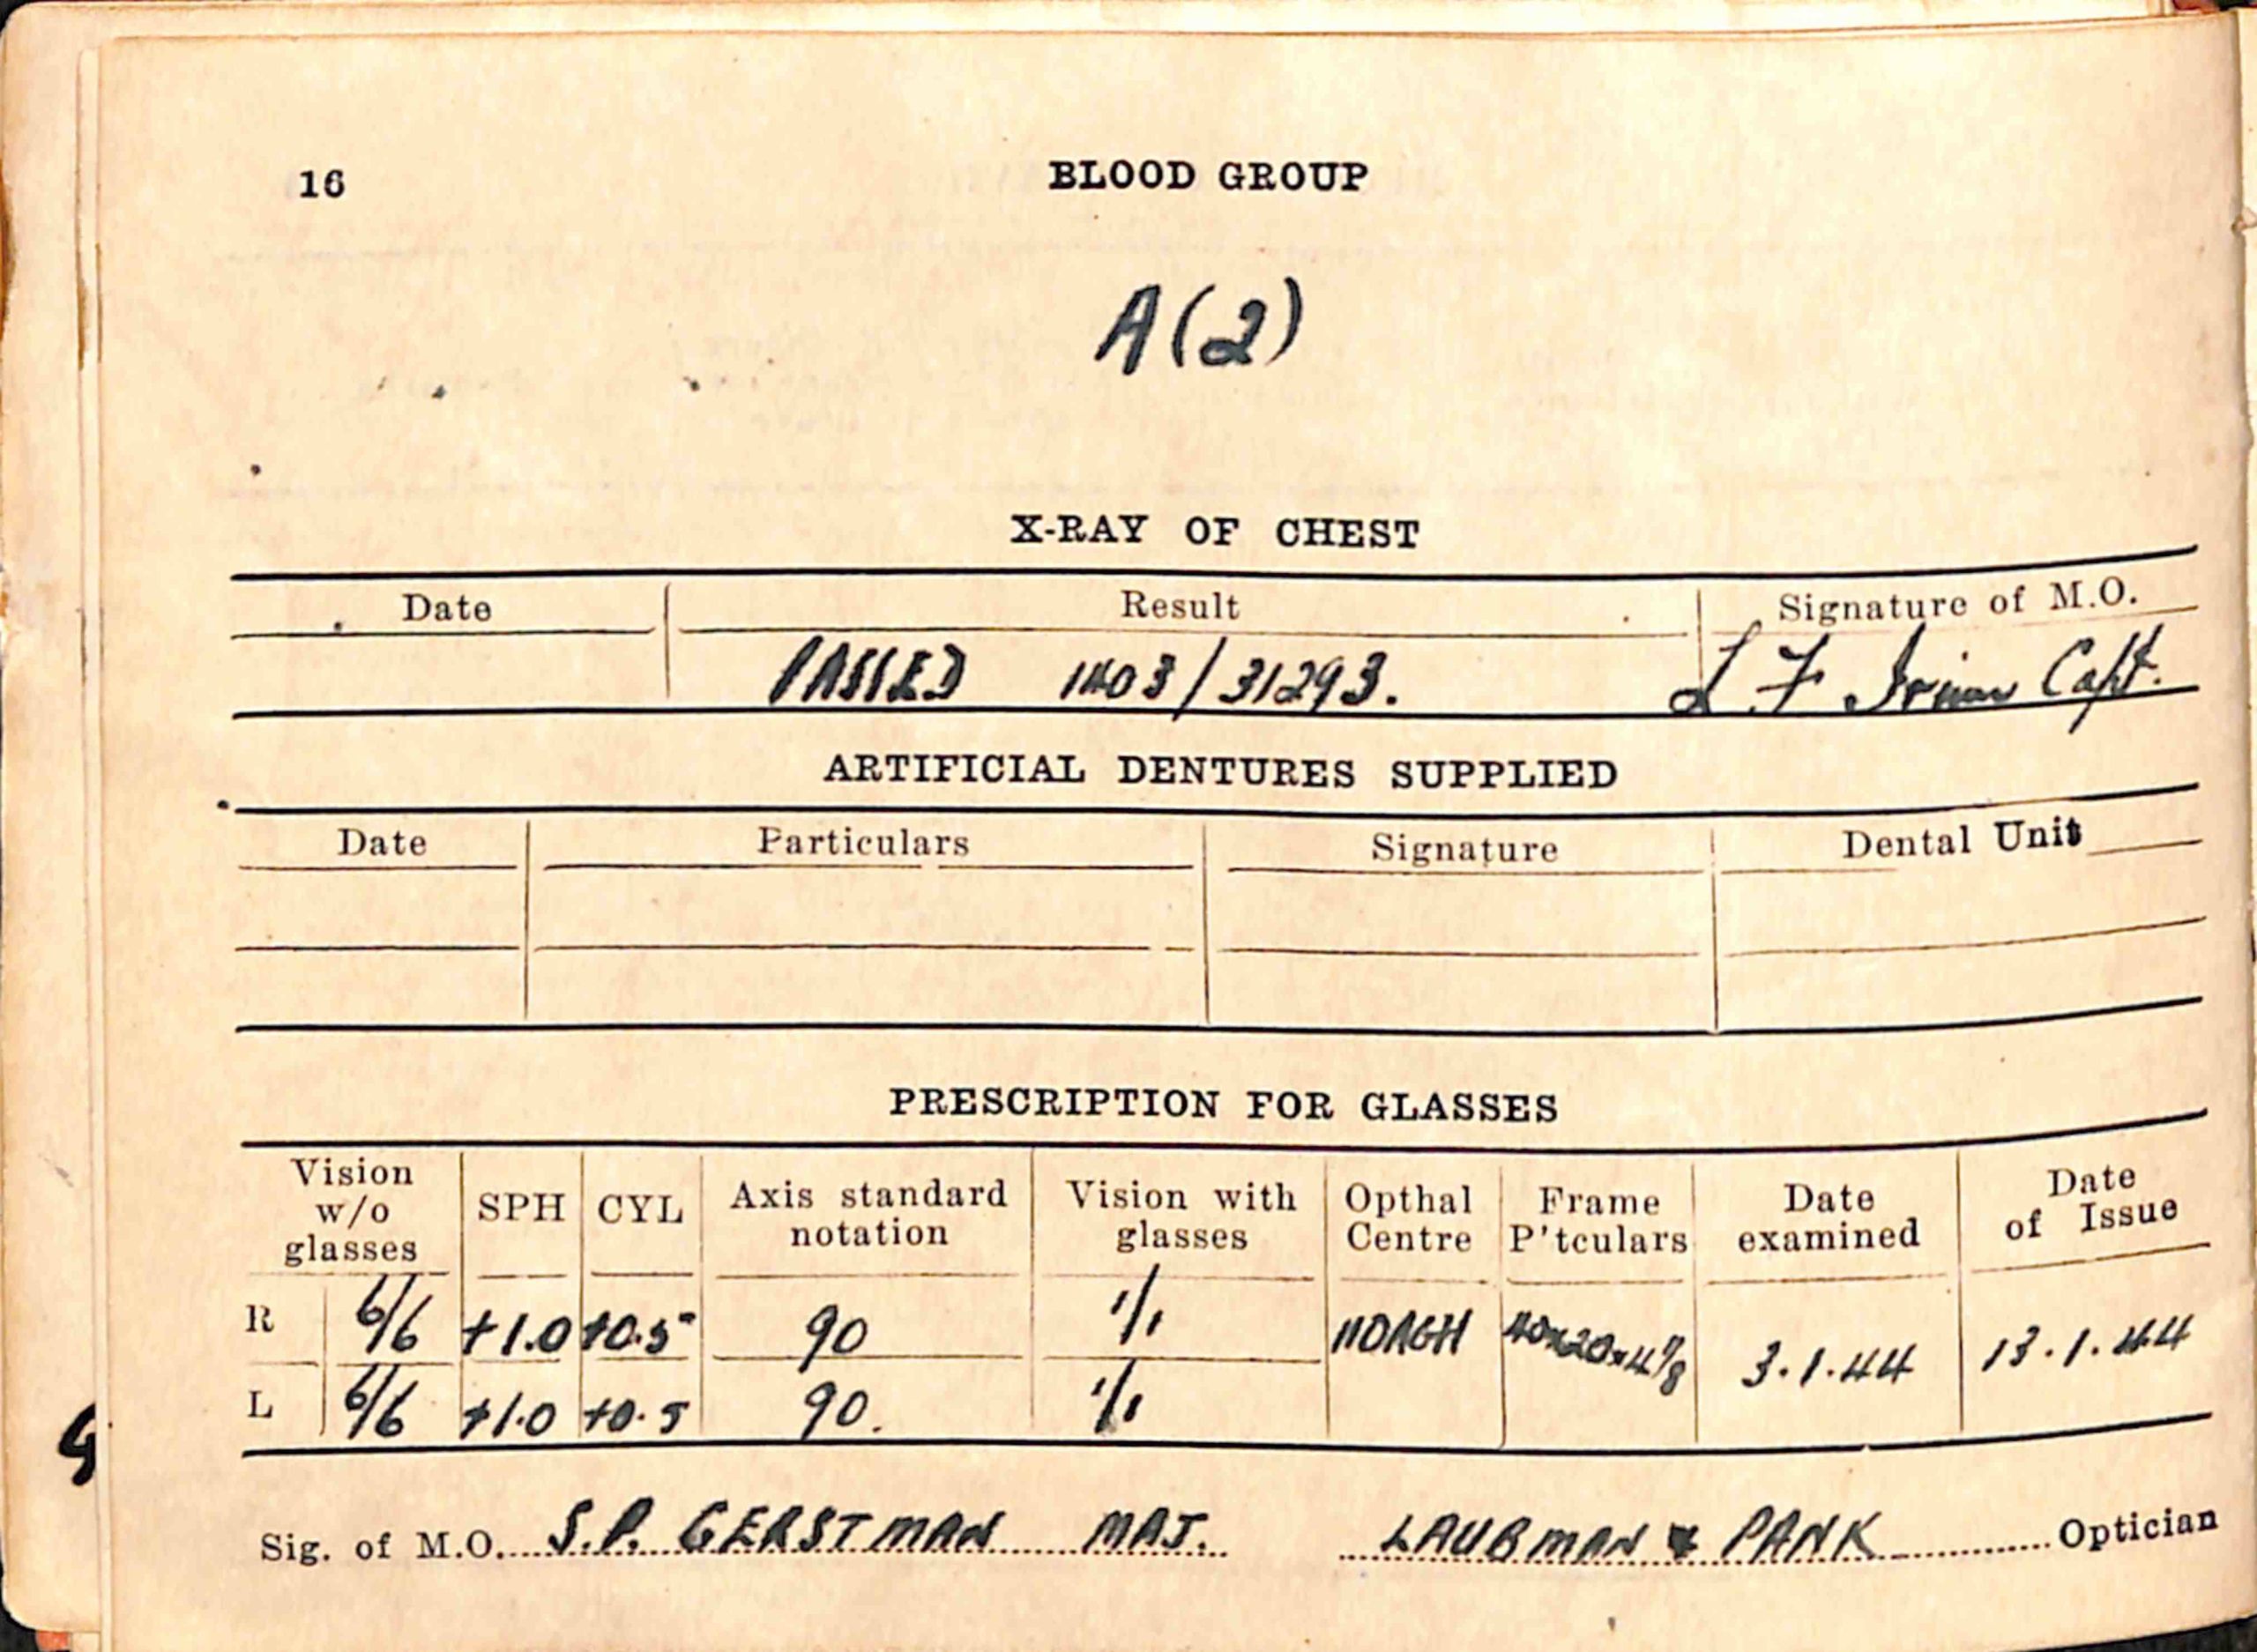 16
BLOOD GROUP
A(2)
X-RAY OF CHEST
Date Result Signature of M.O.
PASSED 1403/31293. L F Capt.
ARTIFICIAL DENTURES SUPPLIED
Date Particulars Signature Dental Unit
PRESCRIPTION FOR GLASSES
Vision w/o glasses SPH CYL Axis standard notation Vision with glasses Opthal Centre Frame P'tculars Date examined Date of Issue
R 6/6 +1.0 +0.5 90 1/1 110AGH 40x20x4⅞ 3.1.44 13.1.44
L 6/6 +1.0 +0.5 90. 1/1
Sig. of M.O. S.P. GERSTMAN MAJ. LAUBMAN & PANK Optician